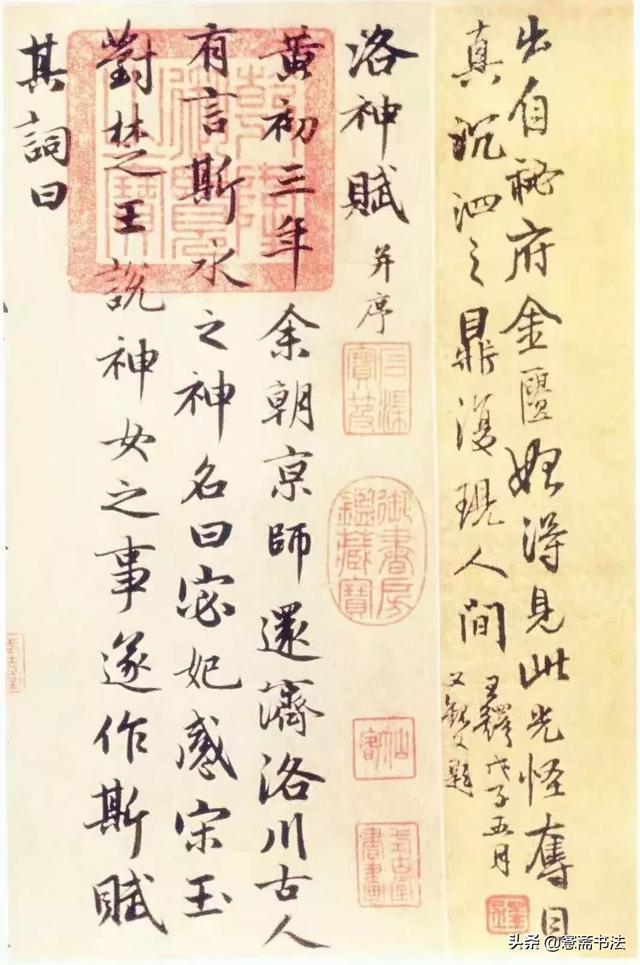 出自祕府金匱始得見此光怪奪目
真沉泗之鼎復現人間
王鐸戊子五月
又題
洛神賦 并序
石渠寶笈
御書房鑑藏寶
式古堂書畫
黃初三年余朝京師還濟洛川古人
有言斯水之神名曰宓妃感宋玉
對楚王說神女之事遂作斯賦
其詞曰
头条 @愙斋书法